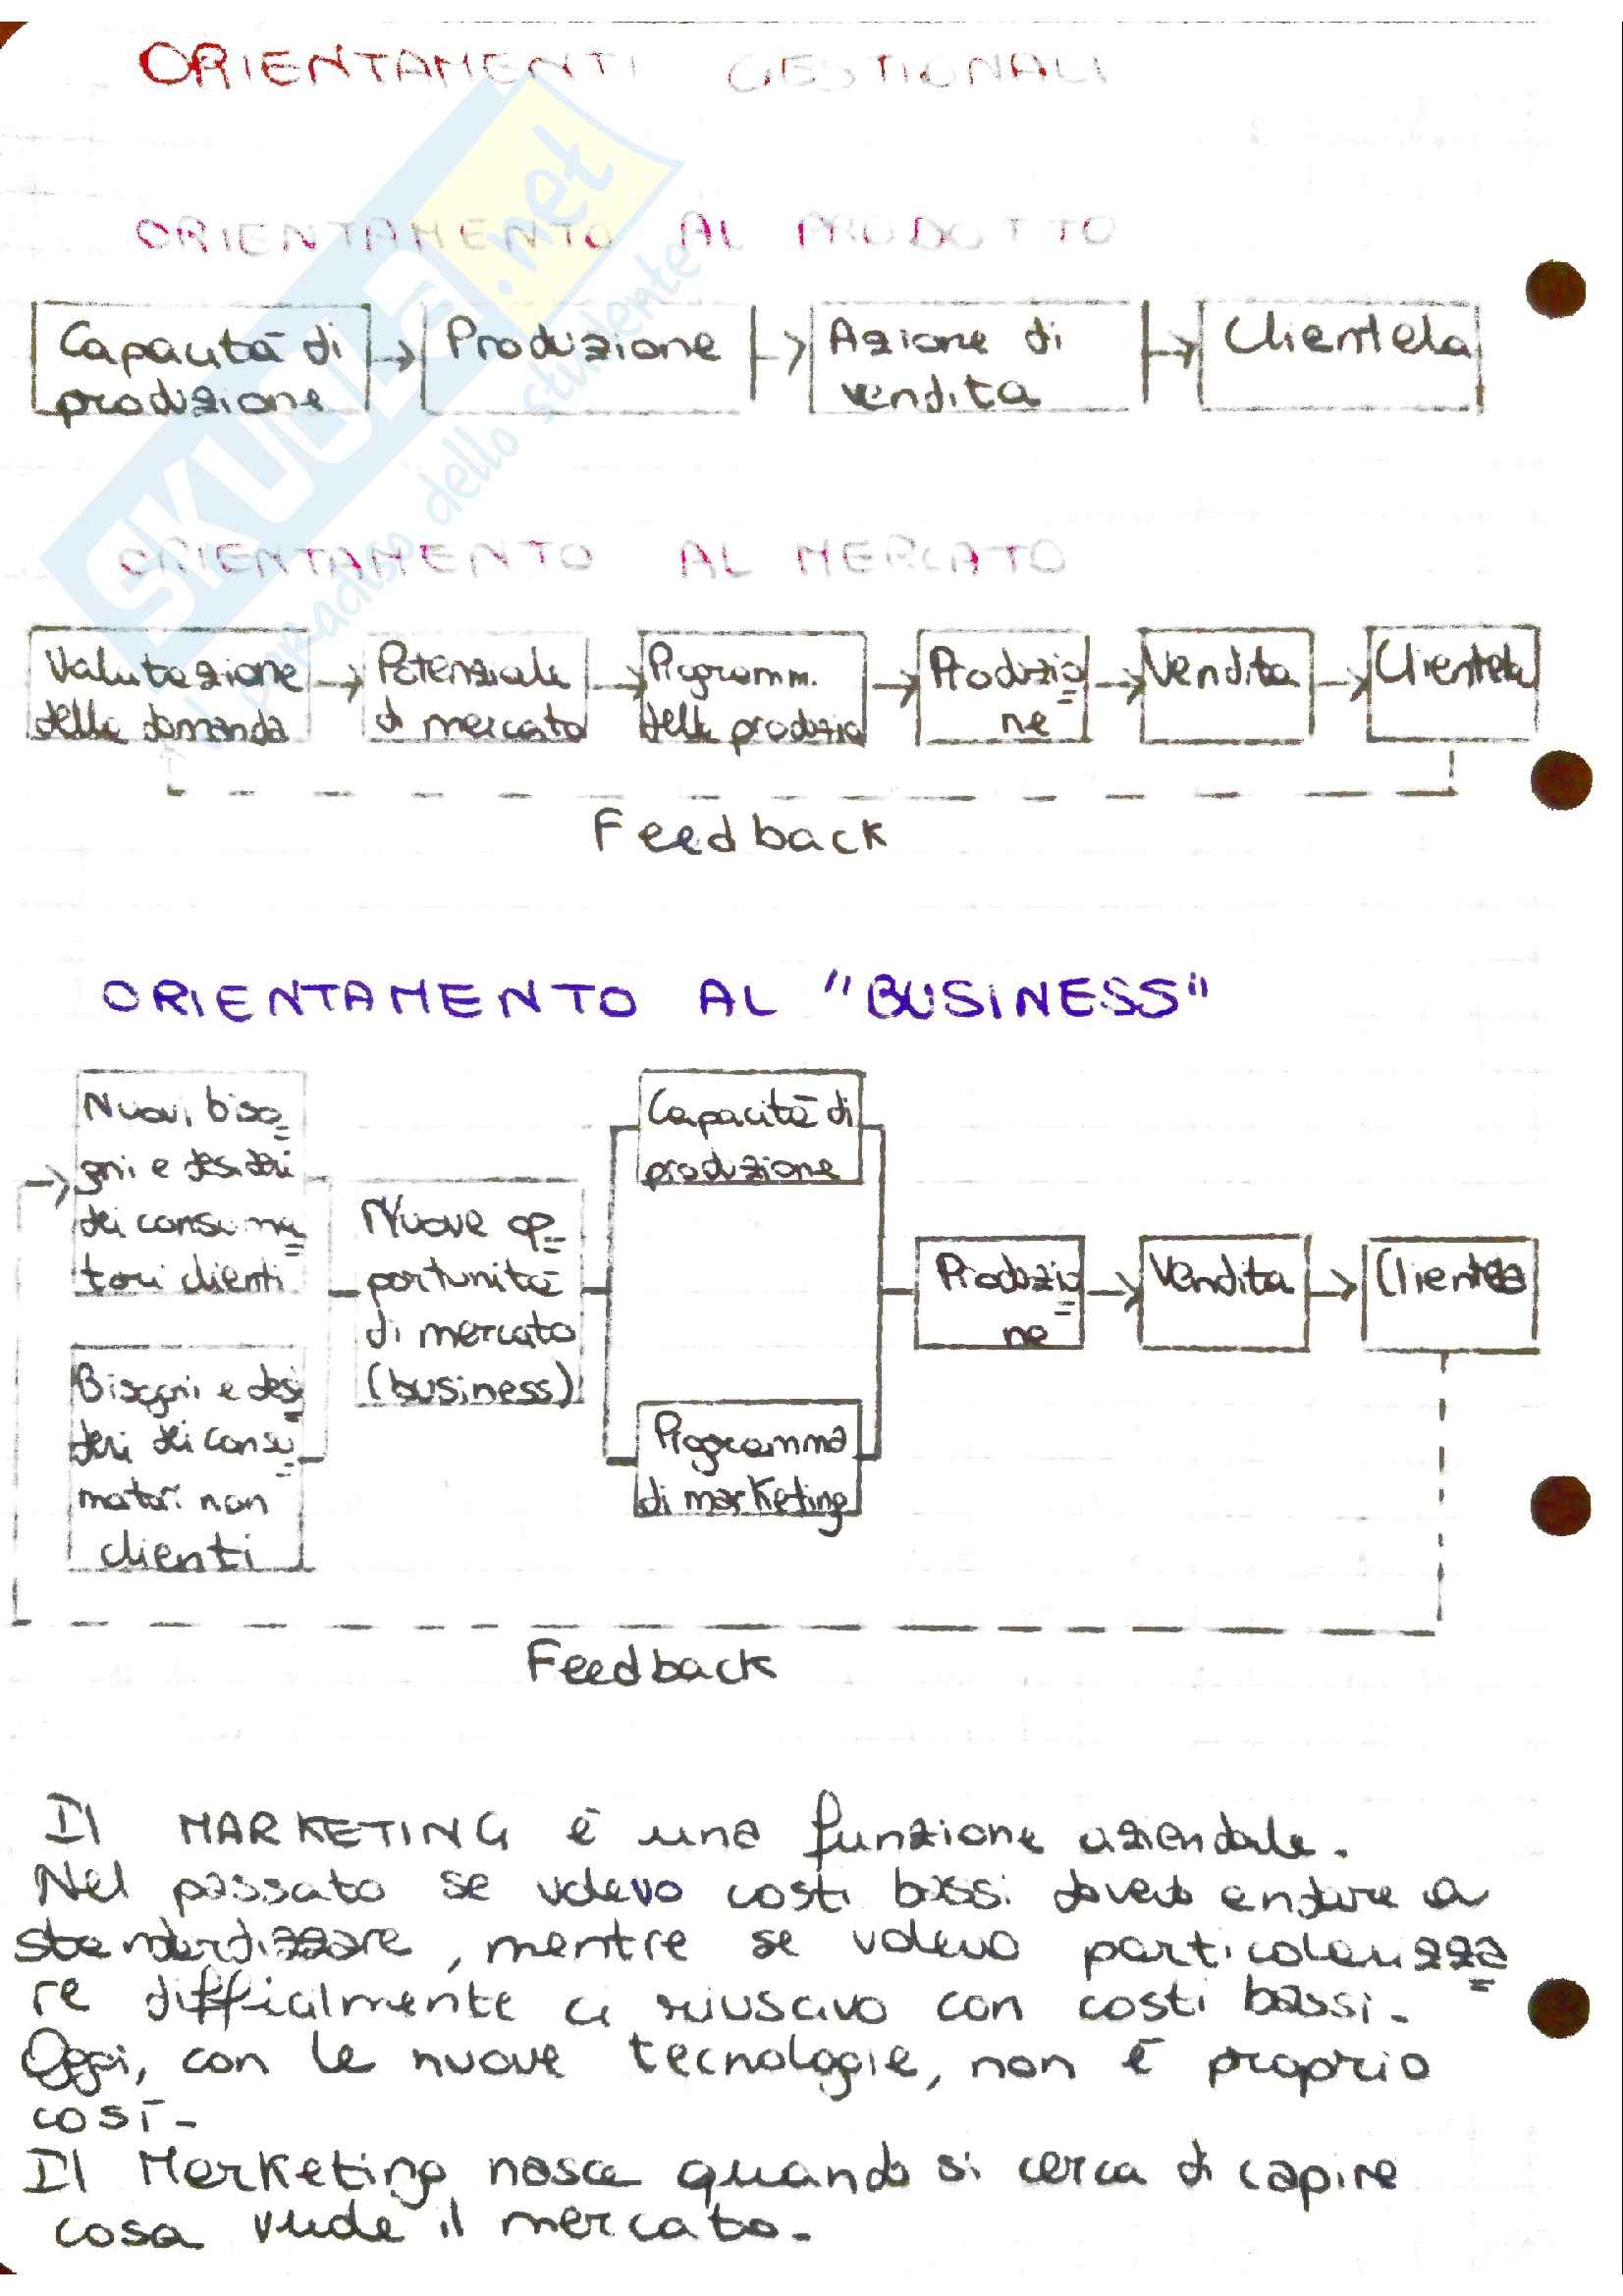 ORIENTAMENTI GESTIONALI
ORIENTAMENTO AL PRODOTTO
Capacità di
produzione
Produzione
Azione di
vendita
Clientela
ORIENTAMENTO AL MERCATO
Valutazione
della domanda
Potenziale
di mercato
Programm.
della produzio
Produzio=
ne
Vendita
Clientela
Feedback
ORIENTAMENTO AL "BUSINESS"
Nuovi biso=
gni e desideri
dei consuma=
tori clienti
Bisogni e desi=
deri dei consu=
matori non
clienti
Nuove op=
portunità
di mercato
(business)
Capacità di
produzione
Programma
di marketing
Produzio=
ne
Vendita
Clientela
Feedback
Il MARKETING è una funzione aziendale.
Nel passato se volevo costi bassi dovevo andare a
standardizzare, mentre se volevo particolarizza=
re difficilmente ci riuscivo con costi bassi.
Oggi, con le nuove tecnologie, non è proprio
così.
Il Marketing nasce quando si cerca di capire
cosa vuole il mercato.
SKUOLA.net
il paradiso dello studente